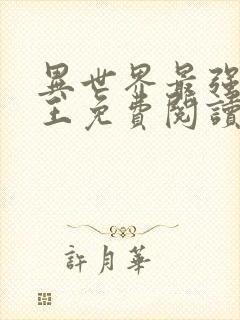 異世界最強
王免費閱讀
許月華